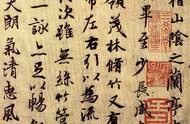 稽山陰之蘭亭
畢至少長咸
領茂林脩竹又有
帶左右引以為流
次雖無絲竹管
一詠亦足以暢
天朗氣清惠風